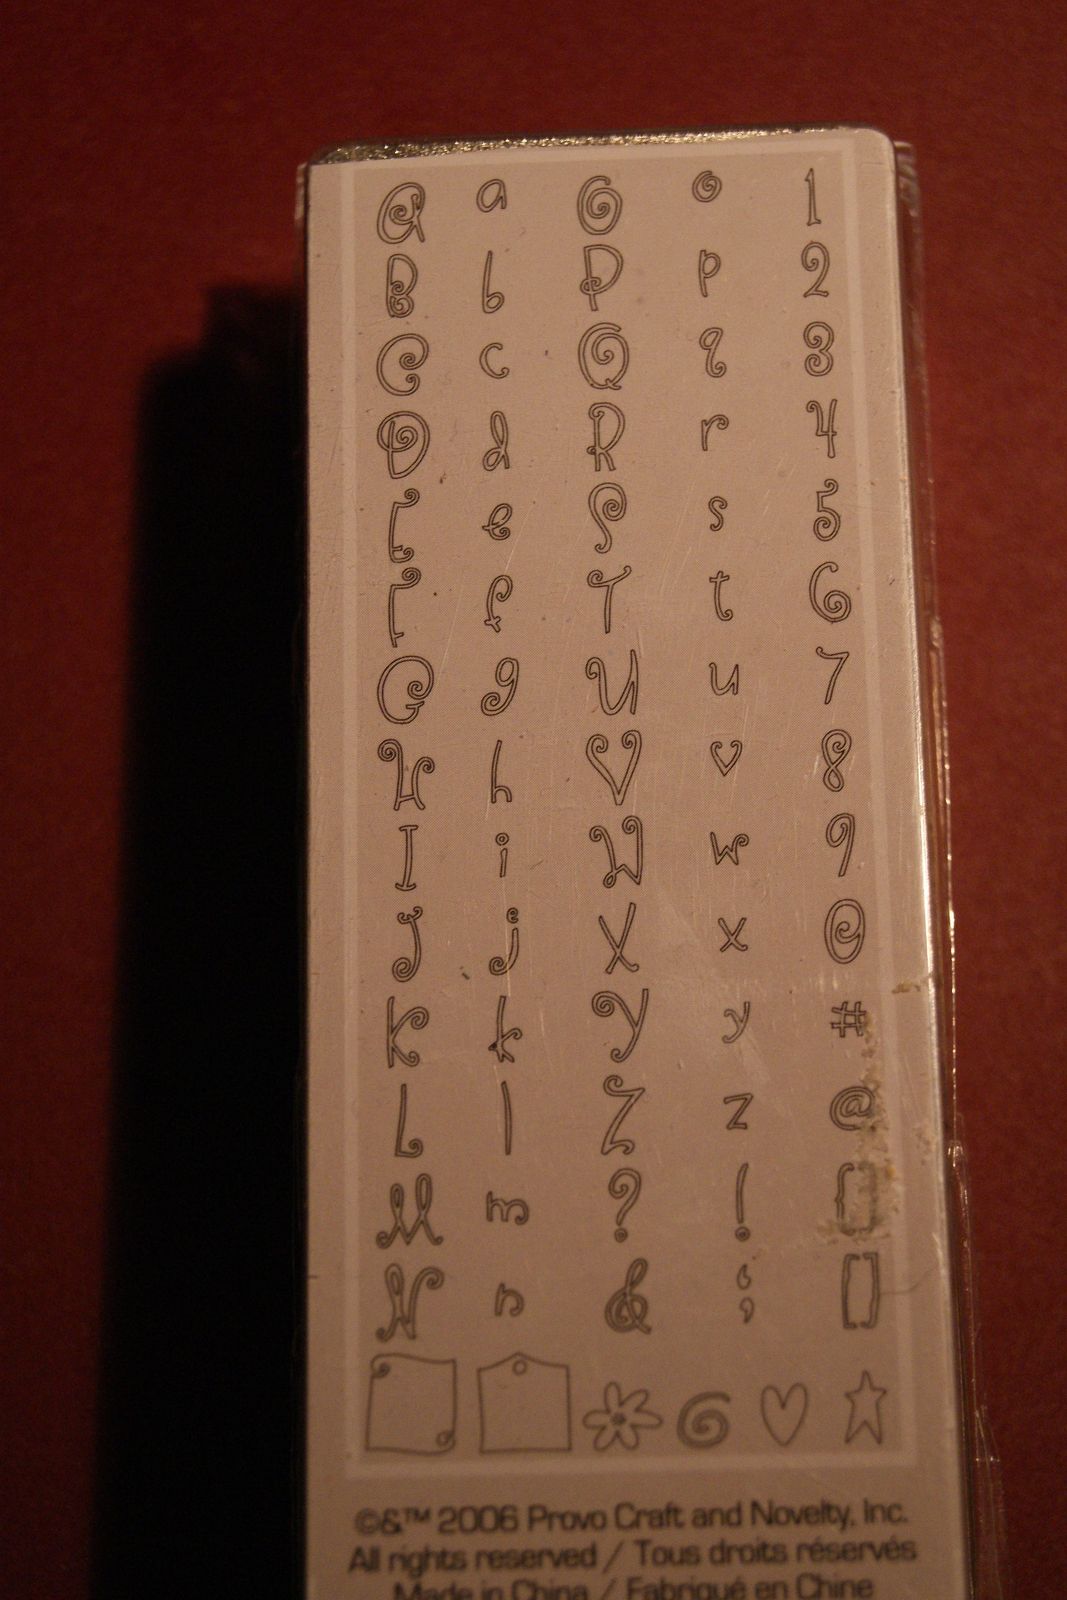 A a O o 1
B b P p 2
C c Q q 3
D d R r 4
E e S s 5
F f T t 6
G g U u 7
H h V v 8
I i W w 9
J j X x 0
K k Y y #
L l Z z @
M m ? ! {}
N n & ; []
©&™ 2006 Provo Craft and Novelty, Inc.
All rights reserved / Tous droits réservés
Made in China / Fabriqué en Chine